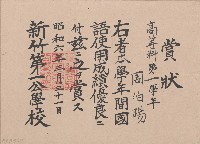 賞狀
高等科第一學年
周伯陽
右者本學年間國
語使用成績優良
ス
昭和六年三月二十一日
新竹第一公學校